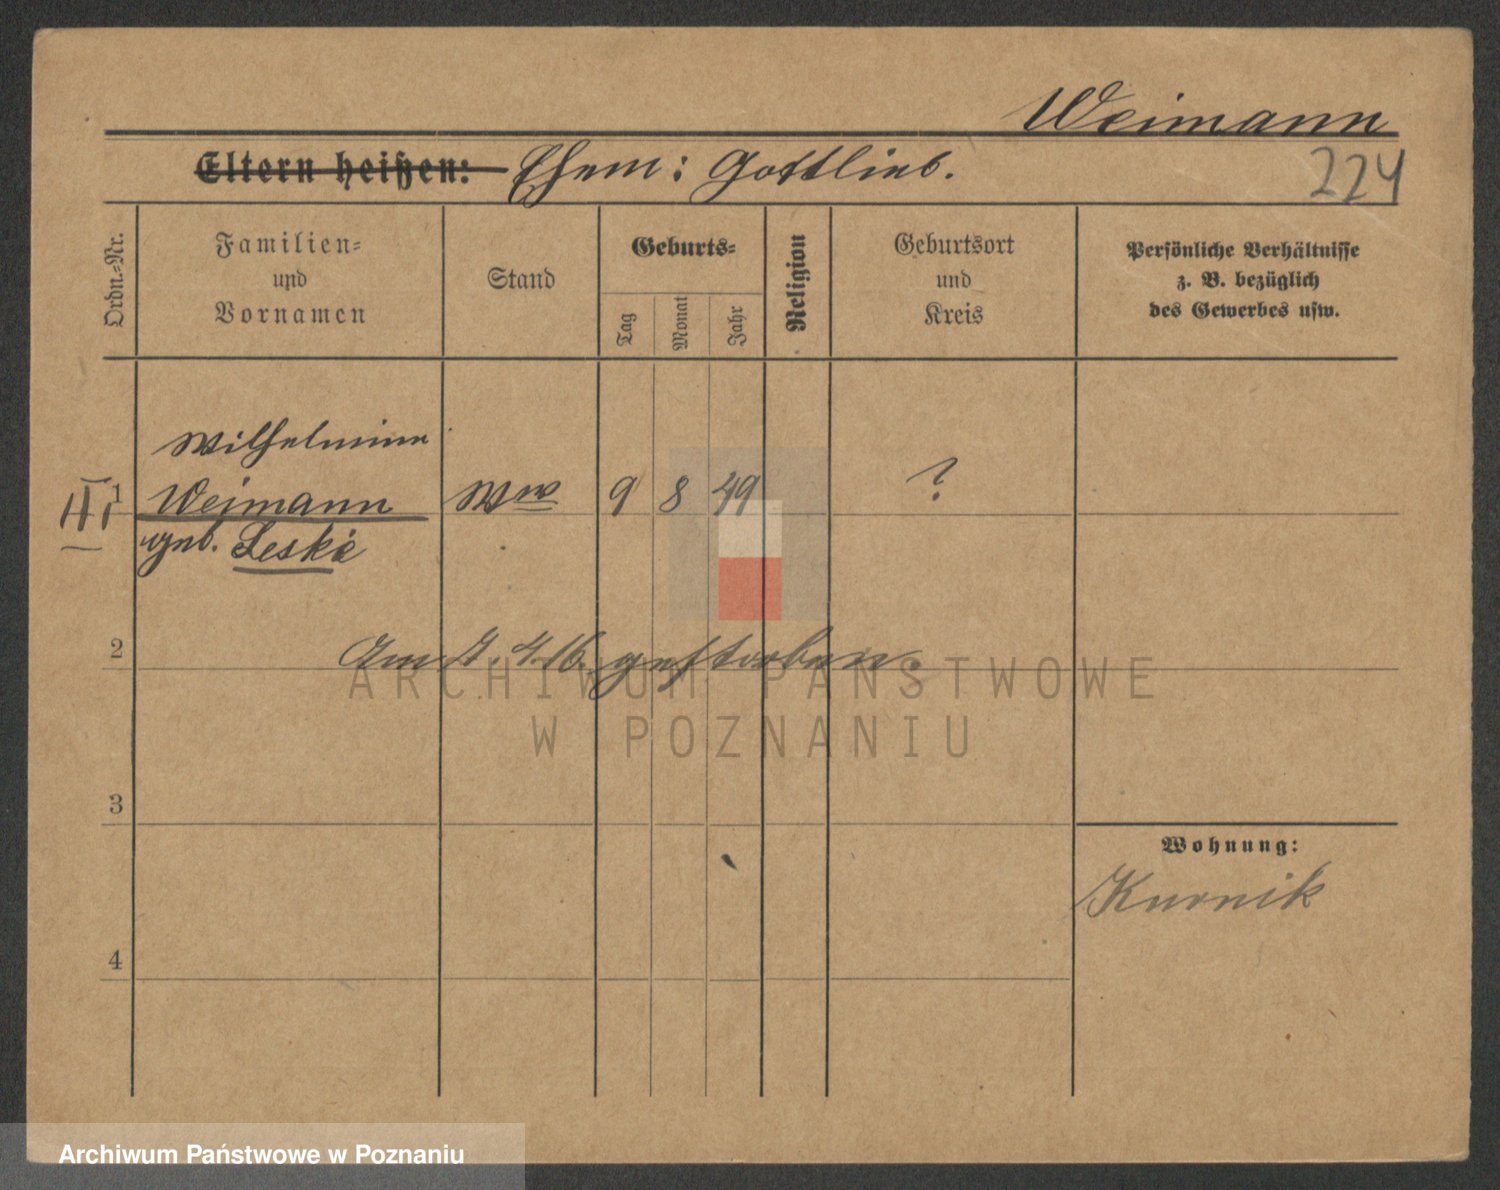 Weimann
Eltern heißen: Ehem: Gottlieb.
224
Ordn.-Nr.
Familien-
und
Vornamen
Stand
Geburts-
Tag
Monat
Jahr
Religion
Geburtsort
und
Kreis
Persönliche Verhältnisse
z. B. bezüglich
des Gewerbes usw.
Wilhelmine
1 Weimann Ww 9 8 49 ?
geb. Leske
2
Am 7. 4. 16. gestorben.
ARCHIWUM PAŃSTWOWE
W POZNANIU
3
Wohnung:
Kurnik
4
Archiwum Państwowe w Poznaniu